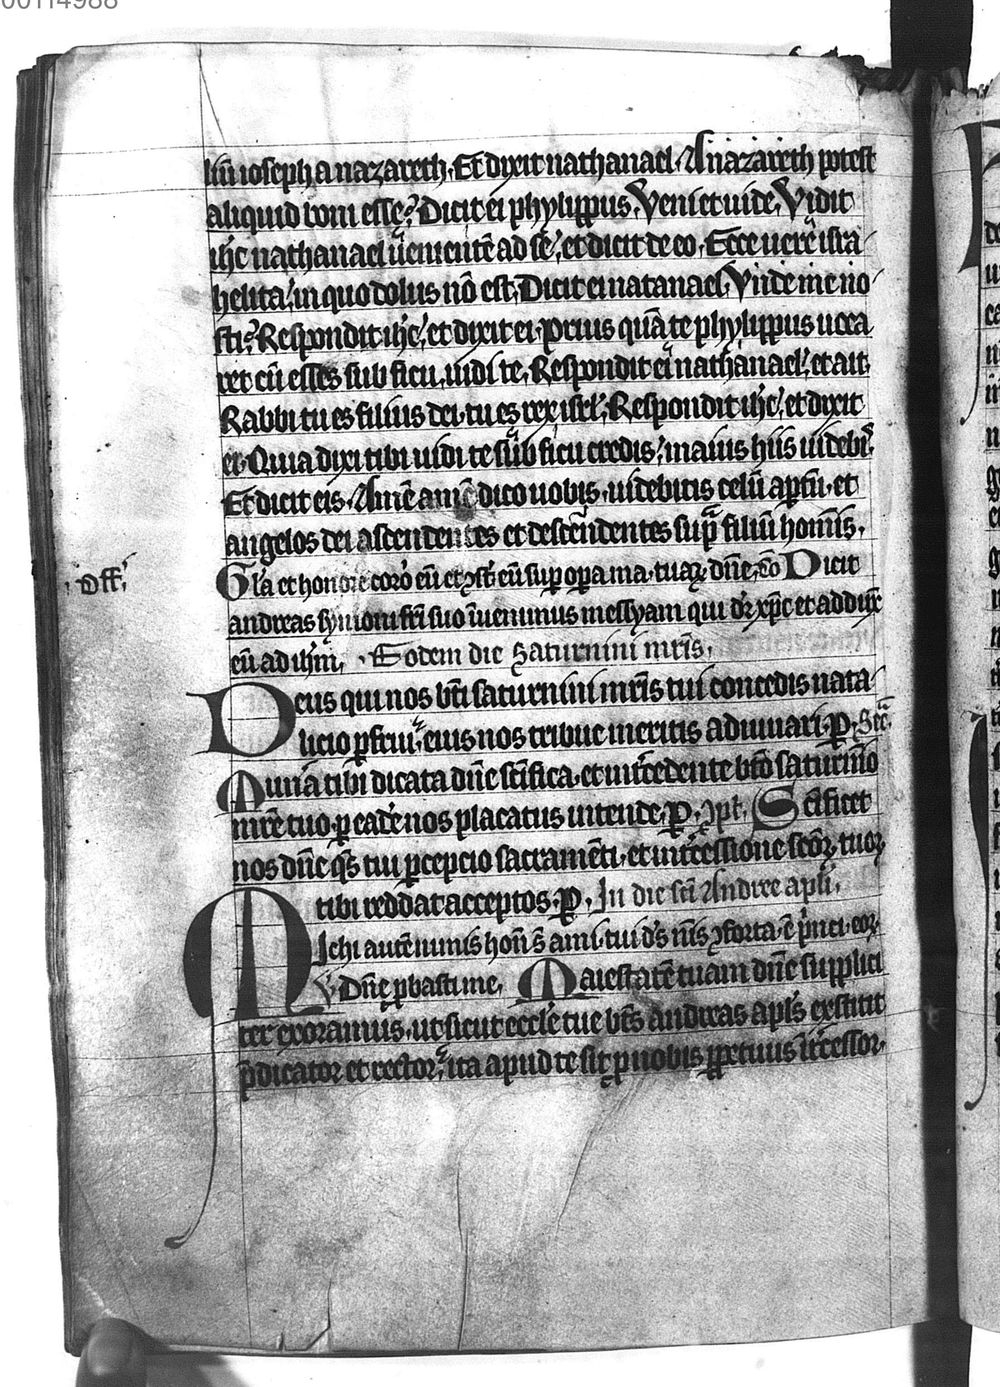 00114988
liū ioseph a nazareth. Et dixit nathanael. A nazareth potest
aliquid boni esse? Dicit ei phylippus. Veni et uide. Vidit
ihc nathanael uenientē ad se. et dicit de eo. Ecce uere isra
helita. in quo dolus nō est. Dicit ei natanael. Vnde me no
sti? Respondit ihc. et dixit ei. prius quā te phylippus uoca
ret cū esses sub ficu. uidi te. Respondit ei nathanael. et ait.
Rabbi tu es filius dei. tu es rex isrl. Respondit ihc. et dixit
ei. Quia dixi tibi uidi te sub ficu credis. maius hiis uidebis.
Et dicit eis. Amē amē dico uobis. uidebitis celū aptū. et
angelos dei ascendentes et descendentes supra filiū hominis.
Off.
Gla et honore coro eū et ɔst eū sup opa ma. tuaꝝ dn̄e. cō Dicit
andreas symoni fri suo īuenimus messyam qui dr xpc et adduxit
eū ad ihm. Eodem die Saturnini mris.
Deus qui nos bti saturnini mris tui concedis nata
licio pfrui. eius nos tribue meritis adiuuari. P. Secr.
Munā tibi dicata dn̄e scifica. et intcedente bto saturnino
mre tuo. p eadē nos placatus intende. P. ɔpl. Scificet
nos dn̄e qs tui pcepcio sacramēti. et intcessione scōꝝ tuoꝝ
tibi reddat acceptos. P. In die sci Andree apli.
Michi autē nimis hon s ami. tui ds nis ɔforta. ē prnci. eoꝝ
V Dn̄e pbasti me. Maiestatē tuam dn̄e supplici
ter exoramus. ut sicut eccle tue bts andreas apls exstitit
pdicator et rector. ita apud te sit p nobis ppetuus ītcessor.